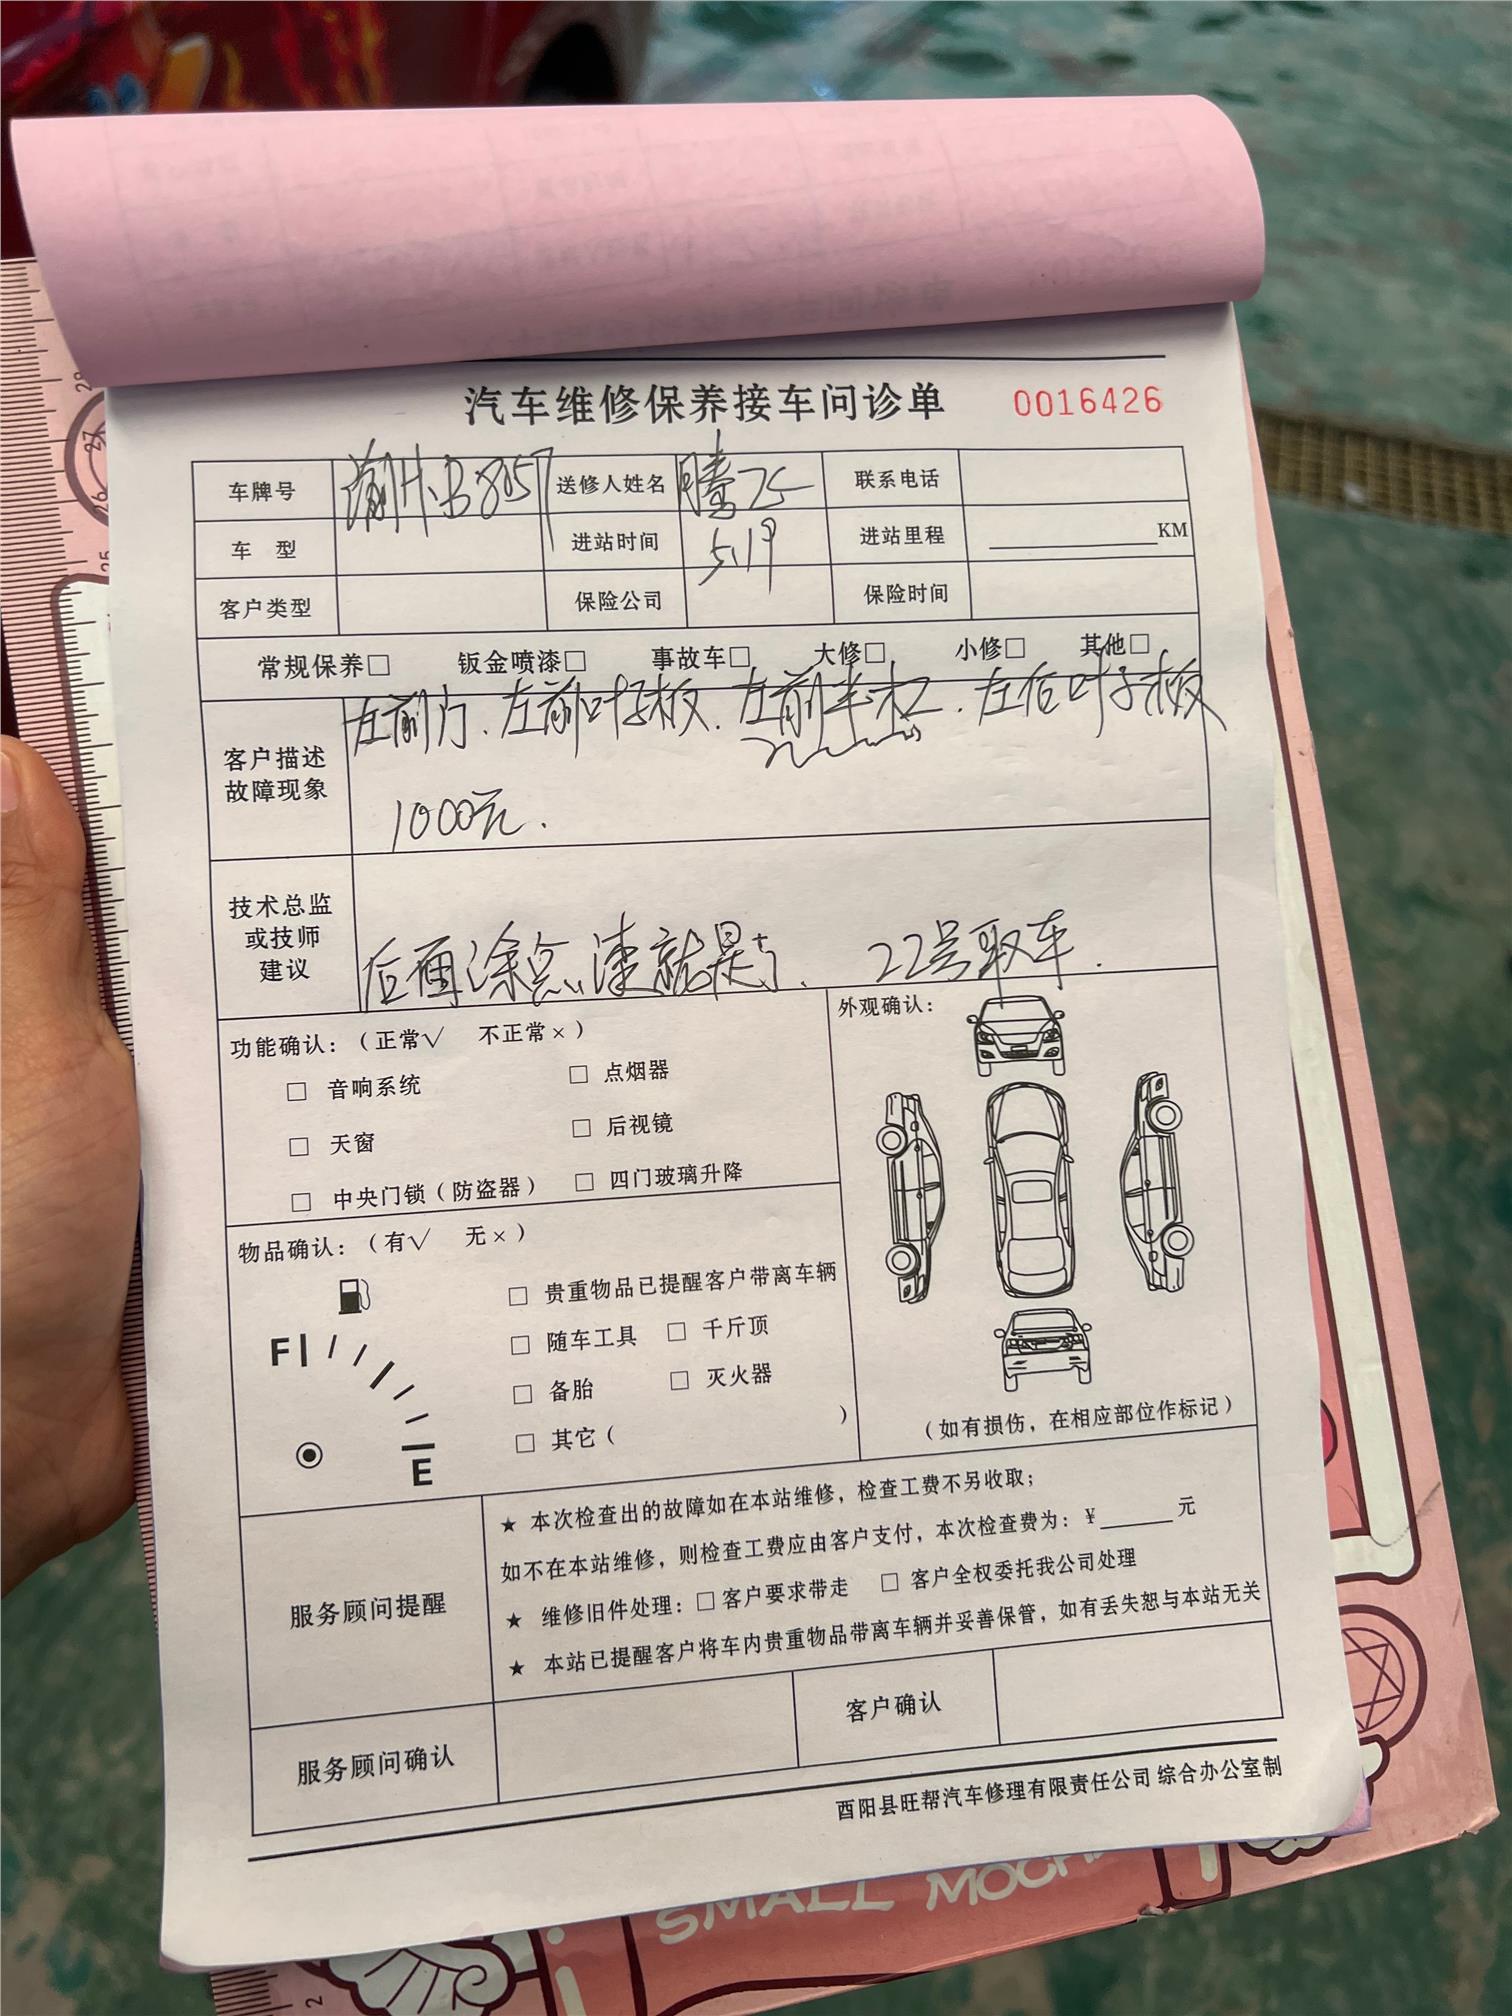 汽车维修保养接车问诊单 0016426
车牌号 B8057 送修人姓名 联系电话
车 型 进站时间 5.19 进站里程 KM
客户类型 保险公司 保险时间
常规保养□ 钣金喷漆□ 事故车□ 大修□ 小修□ 其他□
客户描述
故障现象
左前门、左前叶子板、左前半杠、左后叶子板
1000元.
技术总监
或技师
建议
后面涂点漆就是了. 22号取车.
功能确认：（正常√ 不正常×）
□ 音响系统 □ 点烟器
□ 天窗 □ 后视镜
□ 中央门锁（防盗器） □ 四门玻璃升降
外观确认：
（如有损伤，在相应部位作标记）
物品确认：（有√ 无×）
F
E
□ 贵重物品已提醒客户带离车辆
□ 随车工具 □ 千斤顶
□ 备胎 □ 灭火器
□ 其它（ ）
服务顾问提醒
★ 本次检查出的故障如在本站维修，检查工费不另收取；
如不在本站维修，则检查工费应由客户支付，本次检查费为：¥______元
★ 维修旧件处理：□客户要求带走 □ 客户全权委托我公司处理
★ 本站已提醒客户将车内贵重物品带离车辆并妥善保管，如有丢失恕与本站无关
服务顾问确认 客户确认
酉阳县旺帮汽车修理有限责任公司 综合办公室制
SMALL
28
27
26
25
2